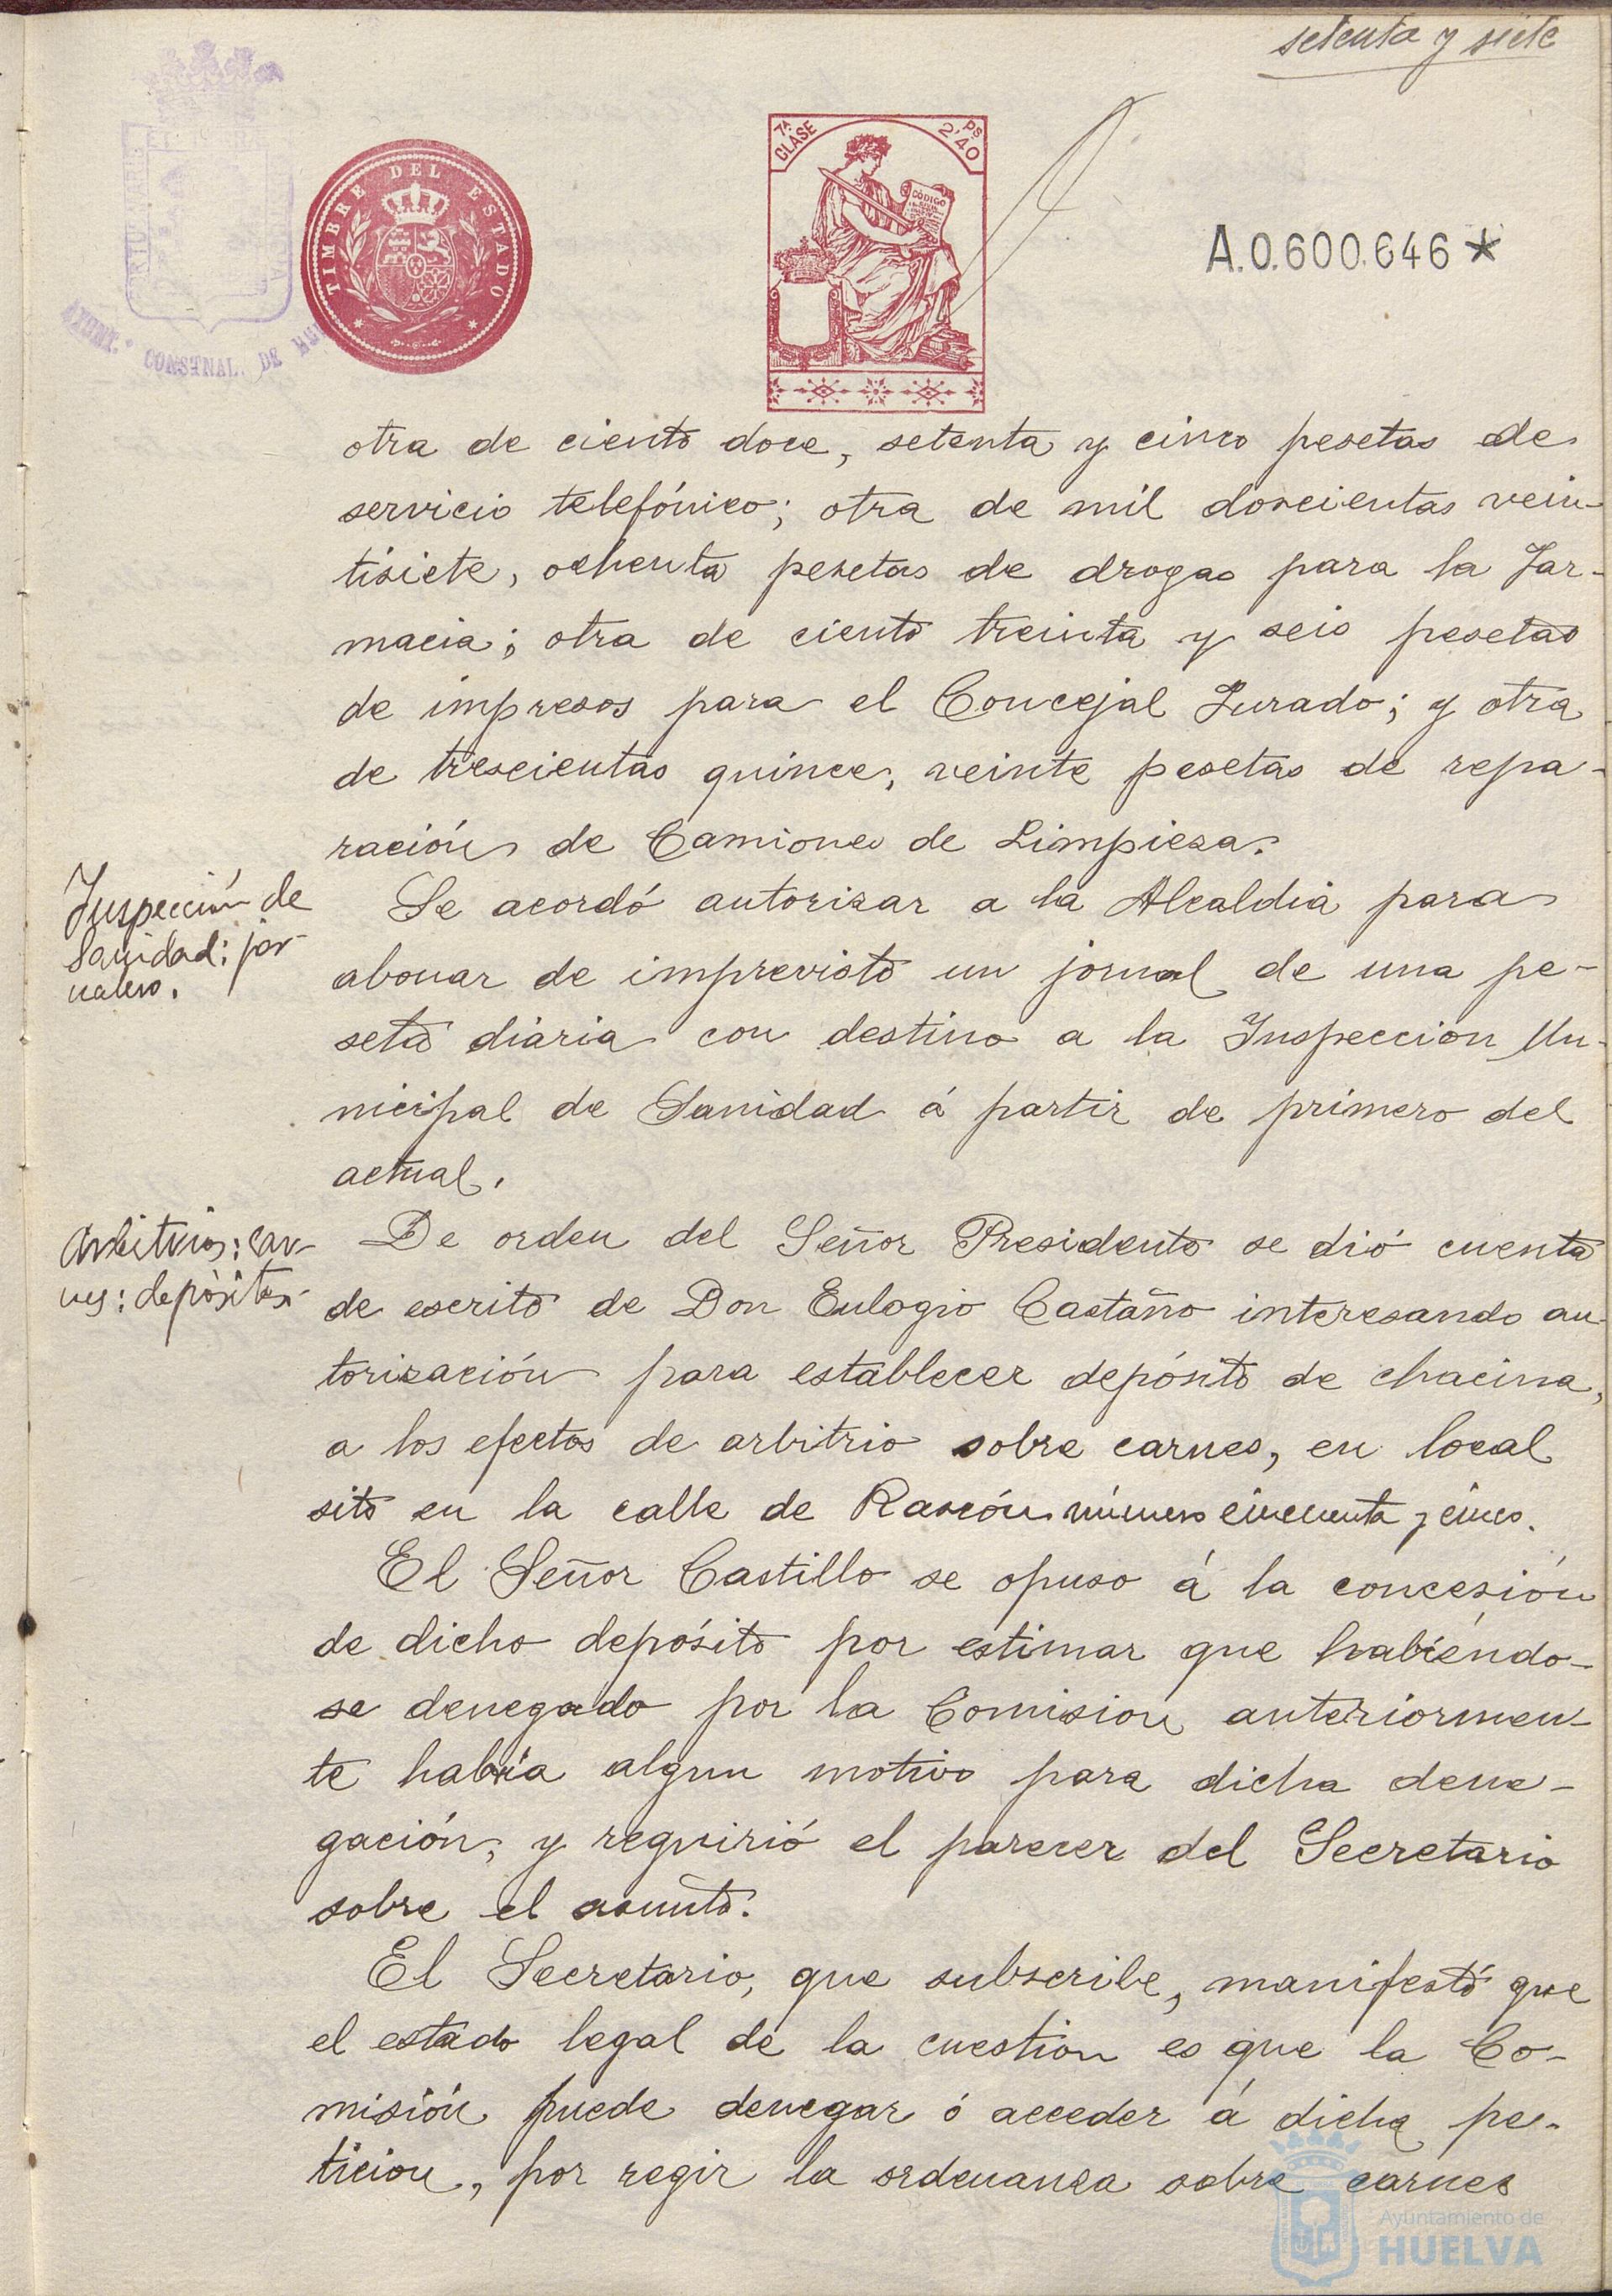 setenta y siete
TIMBRE DEL ESTADO
7ª CLASE
2'40 PS
CÓDIGO
A.0.600.646*
AYUNT.º CONSTNAL. DE HU
otra de ciento doce, setenta y cinco pesetas de
servicio telefónico; otra de mil doscientas vein-
tisiete, ochenta pesetas de drogas para la Far-
macia; otra de ciento treinta y seis pesetas
de impresos para el Concejal Jurado; y otra
de trescientas quince, veinte pesetas de repa-
ración de Camiones de Limpieza.
Inspección de
Sanidad: jor-
nales.
Se acordó autorizar a la Alcaldia para
abonar de imprevisto un jornal de una pe-
seta diaria con destino a la Inspeccion Mu-
nicipal de Sanidad á partir de primero del
actual.
Arbitrios: car-
nes: depósitos.
De orden del Señor Presidente se dió cuenta
de escrito de Don Eulogio Castaño interesando au-
torización para establecer depósito de chacina,
a los efectos de arbitrio sobre carnes, en local
sito en la calle de Rascón número cincuenta y cinco.
El Señor Castillo se opuso á la concesión
de dicho depósito por estimar que habiéndo-
se denegado por la Comision anteriormen-
te habría algun motivo para dicha dene-
gación, y requirió el parecer del Secretario
sobre el asunto.
El Secretario, que subscribe, manifestó que
el estado legal de la cuestion es que la Co-
misión puede denegar ó acceder á dicha pe-
ticion, por regir la ordenanza sobre carnes
Ayuntamiento de
HUELVA